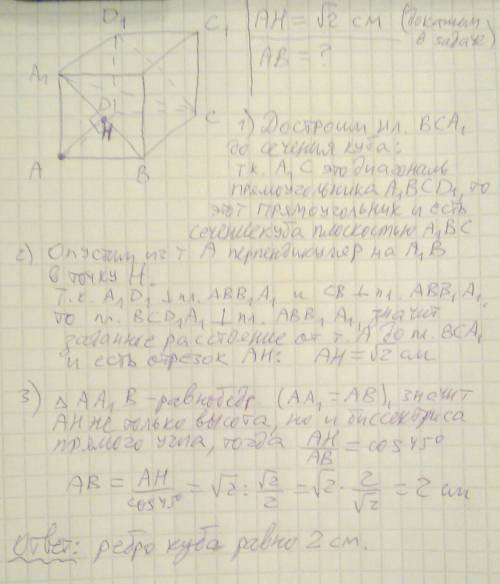 D₁
C₁
A₁
D
H
C
A
B
AH = √2 см (покажем
в задаче)
AB = ?
1) Достроим пл. BCA₁
до сечения куба:
т.к. A₁C это диагональ
прямоугольника A₁BCD₁, то
этот прямоугольник и есть
сечение куба плоскостью A₁BC
2) Опустим из т A перпендикуляр на A₁B
в точку H.
Т.к. A₁D₁ ⊥ пл. ABB₁A₁ и CB ⊥ пл. ABB₁A₁,
то пл. BCD₁A₁ ⊥ пл. ABB₁A₁, значит
заданное расстояние от т. A до пл. BCA₁
и есть отрезок AH: AH = √2 см
3) △ AA₁B – равнобедр. (AA₁ = AB), значит
AH не только высота, но и биссектриса
прямого угла, тогда AH/AB = cos 45°
AB = AH/cos 45° = √2 : √2/2 = √2 · 2/√2 = 2 см
Ответ: ребро куба равно 2 см.